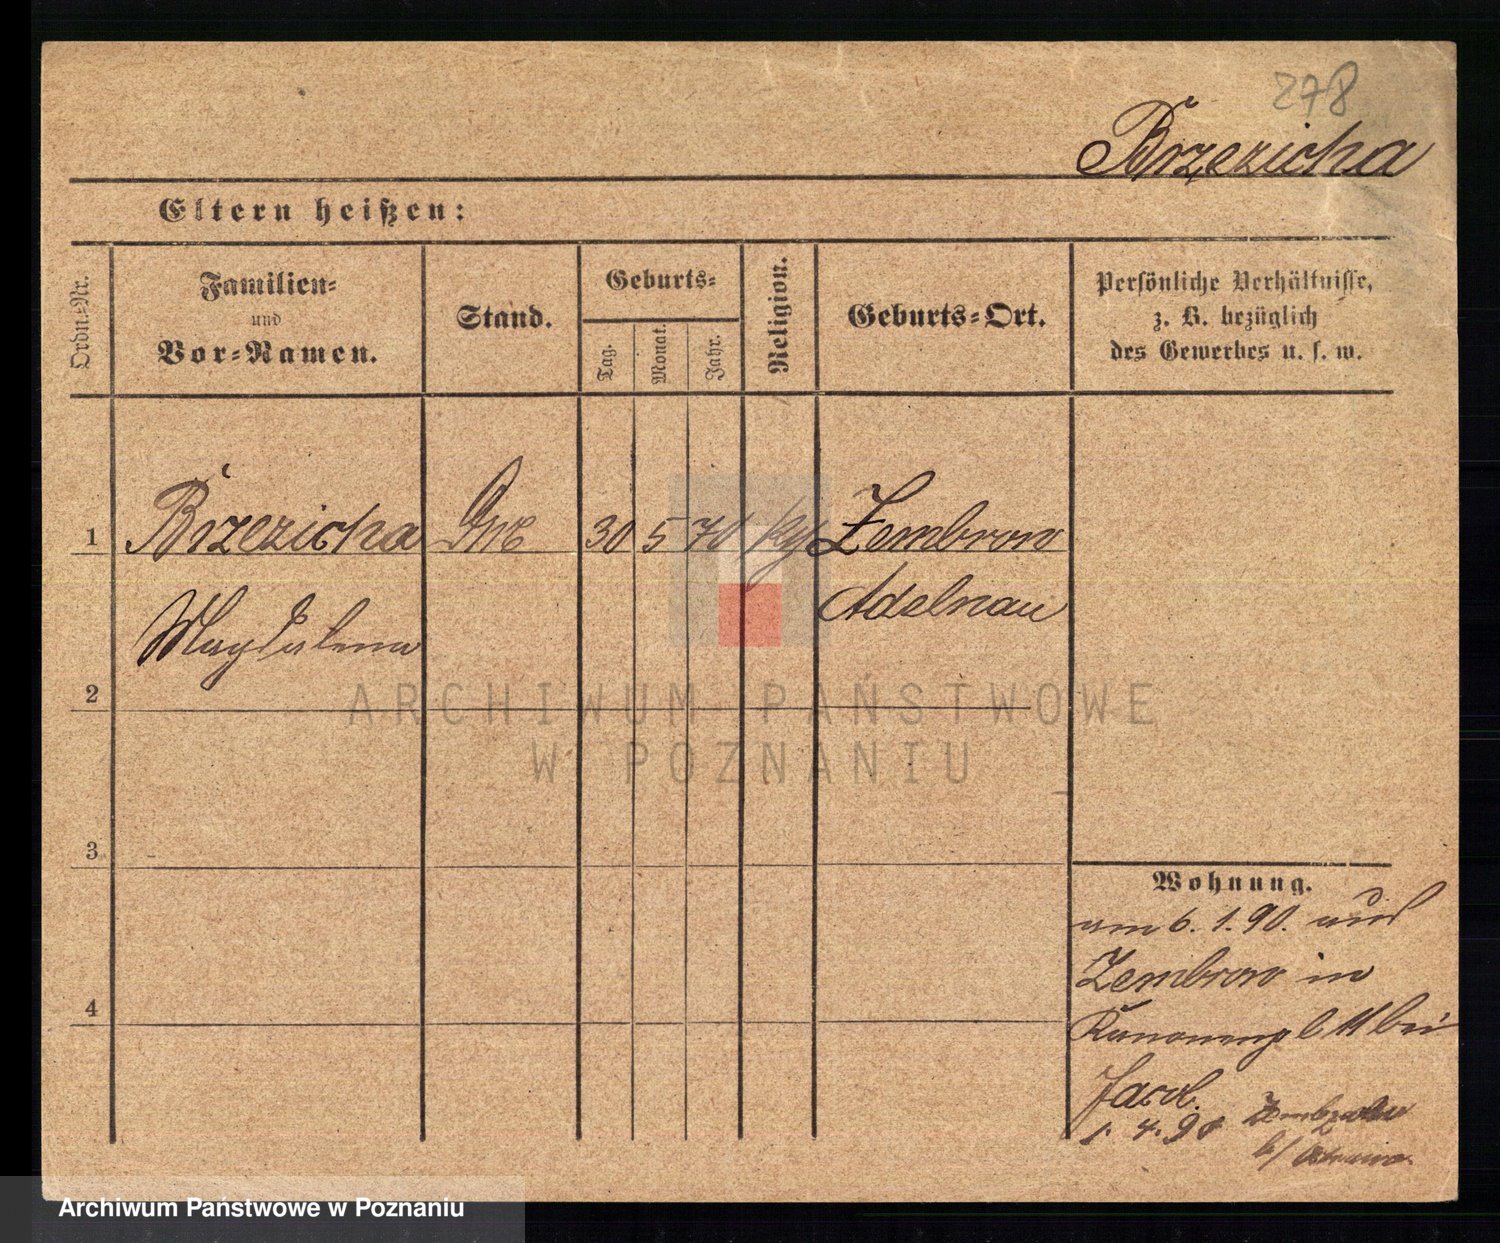 278
Brzezicha
Eltern heißen:
Ordn.-Nr.
Familien-
und
Vor-Namen.
Stand.
Geburts-
Tag.
Monat.
Jahr.
Religion.
Geburts-Ort.
Persönliche Verhältnisse,
z. B. bezüglich
des Gewerbes u. s. w.
1 Brzezicha 30 5 70 Zembrow
Magdalena Adelnau
2
ARCHIWUM PAŃSTWOWE
W POZNANIU
3
4
Wohnung.
am 6. 1. 90. aus
Zembrow in
Kanonenpl 11 bei
Jacob.
1. 4. 90
Archiwum Państwowe w Poznaniu